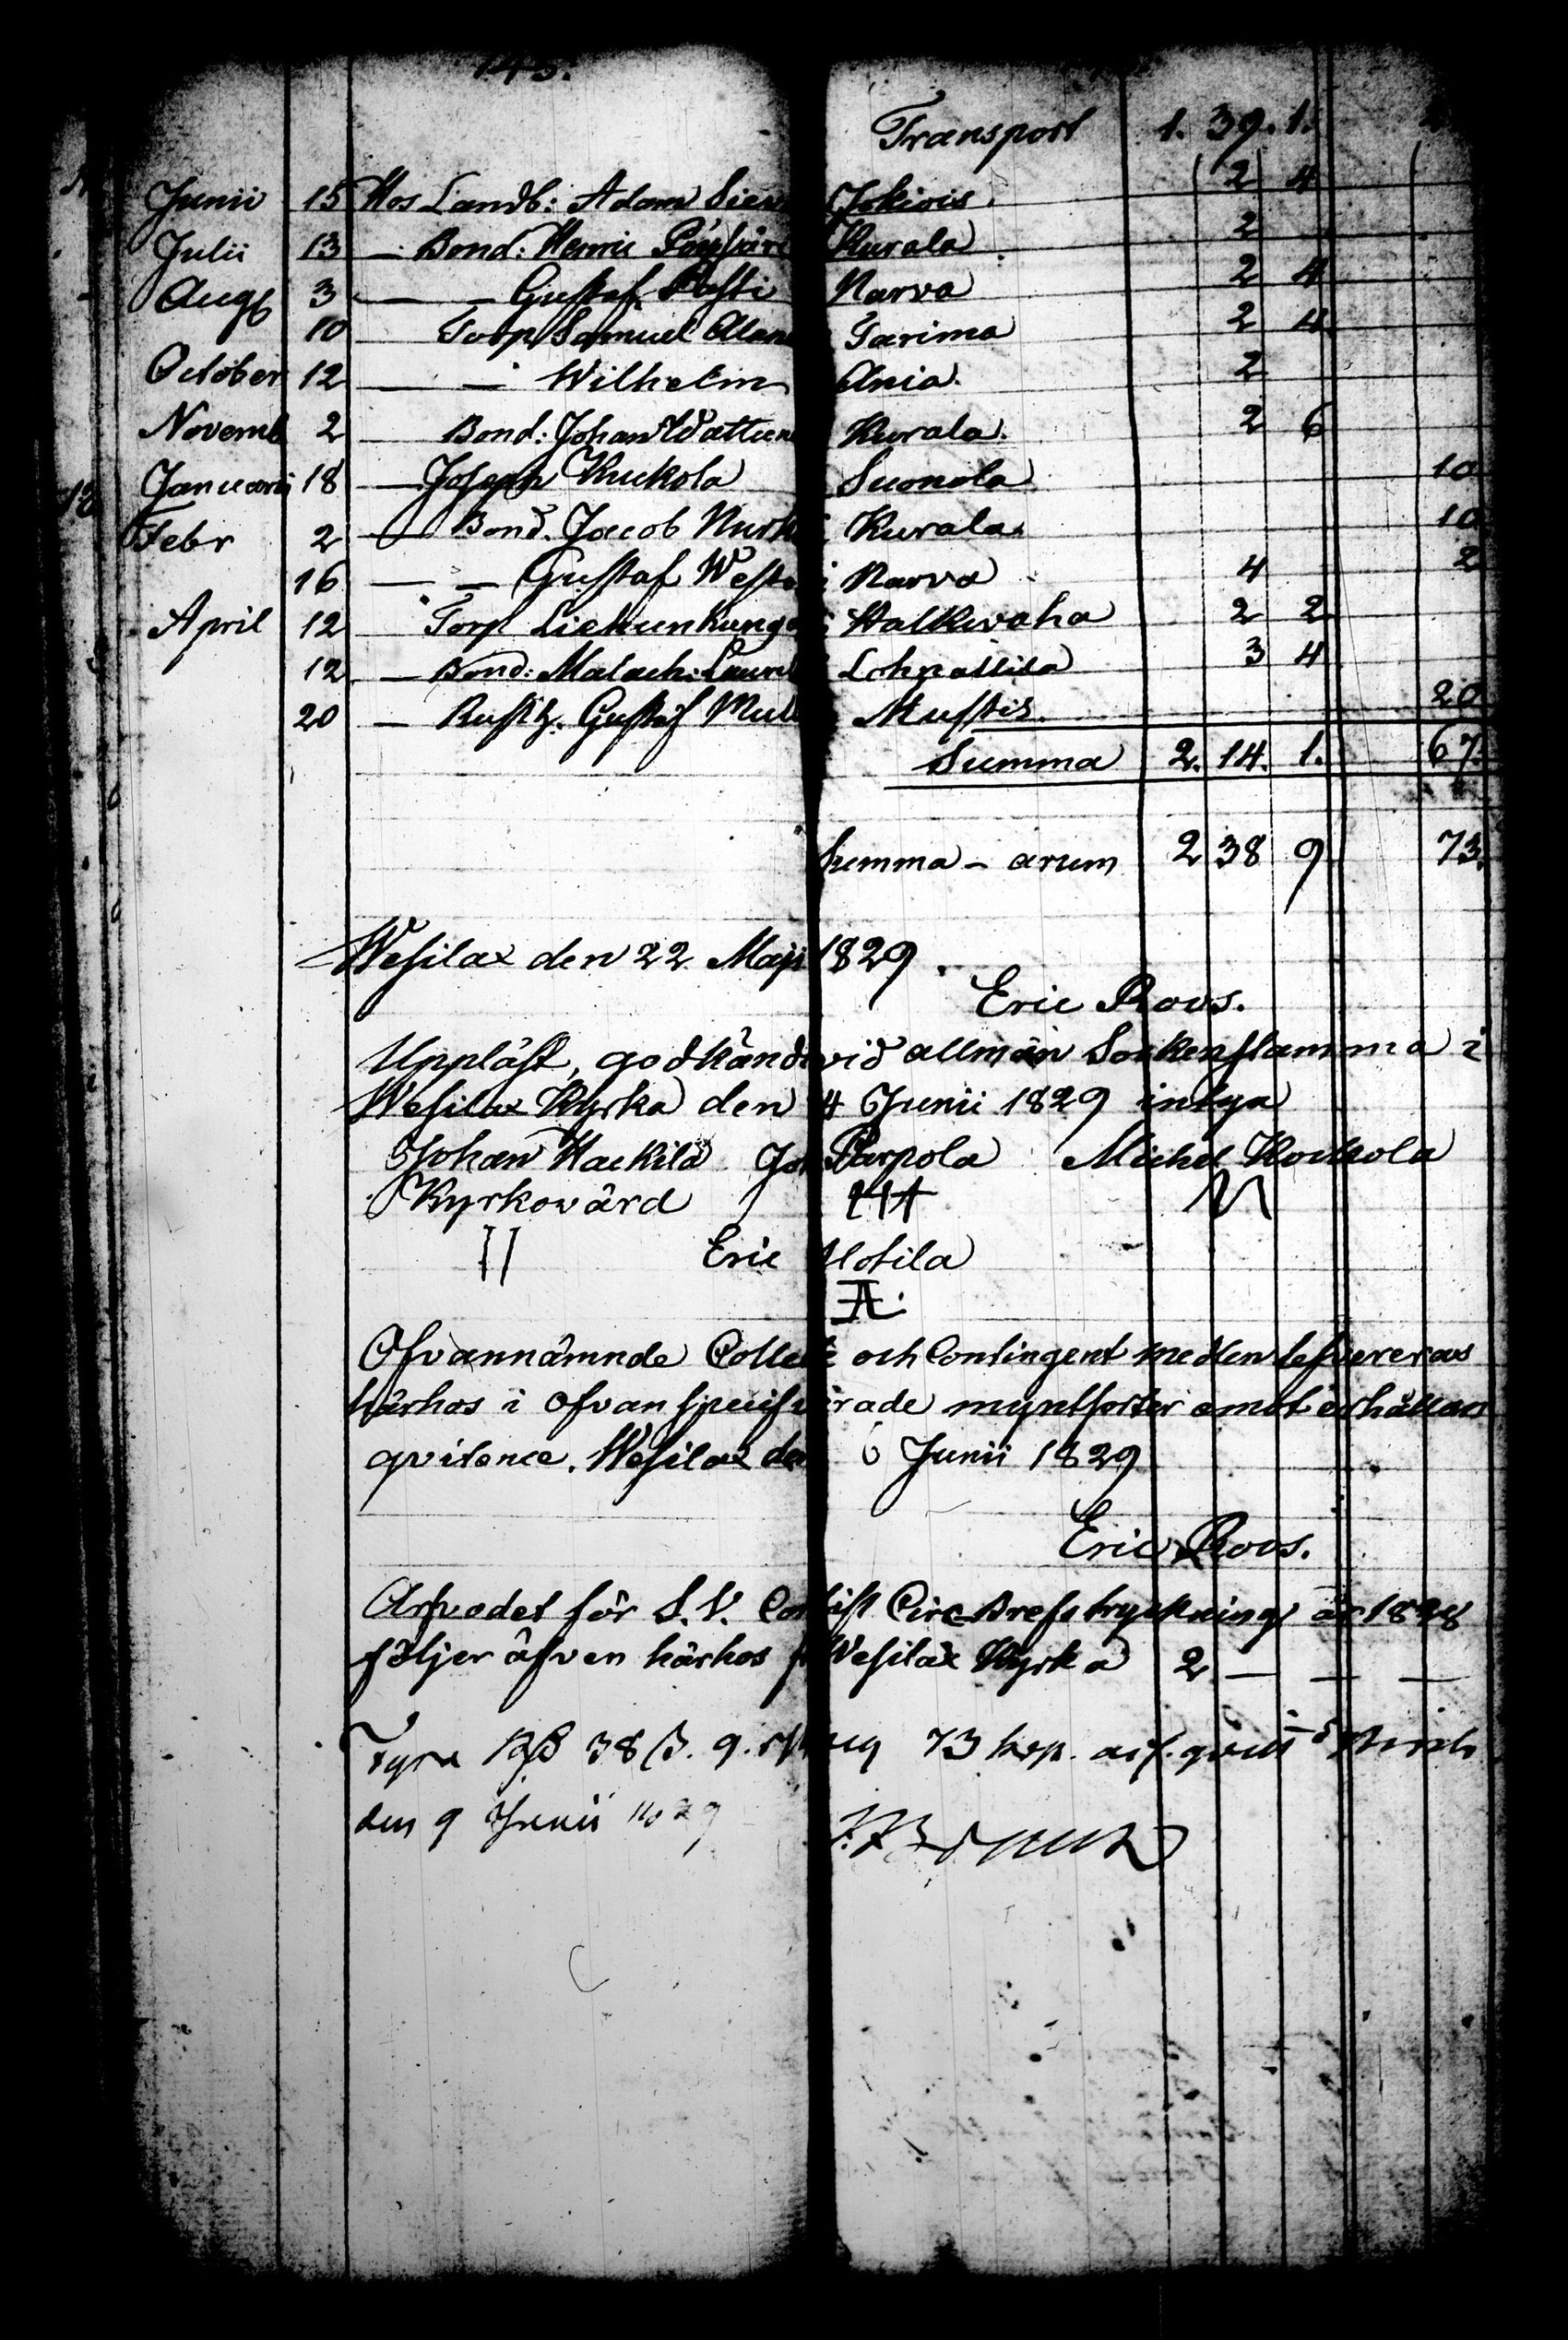 145.
Transport 1. 39. 1.
Junii 15 Hos Landb: Adam Jokiois. 2 4
Julii 13 — Bond: Henric Kurala 2
Aug 3 — — Gustaf Pasti Narva 2 4
10 Torp Samuel Tarima 2 4
October 12 — — Wilhelm Ania. 2
Novemb 2 — Bond: Johan Kurala. 2 6
Januarii 18 — Joseph Kuckola Suonola 10
Febr 2 — Bond. Jacob Kurala. 10
16 — — Gustaf Narva 4 2
April 12 Torp Walkivaha 2 2
12 — Bond: Malach: Lohpallila 3 4
20 — Rusth. Gustaf Mustis. 20
Summa 2. 14. 1. 67.
Summa-arum 2 38 9 73.
Wesilax den 22 Maji 1829.
Eric Roos.
Uppläst, godkänd vid allmän Sockenstamma i
Wesilax Kyrka den 4 Junii 1829 intyga
Johan Hackila Joh Parpola Michel Kockola
Kyrkovärd
Eric
Ofvannämnde Collect och Contingent medlen lefvereras
härhos i ofvan specificerade myntsorter emot erhållan
qvitence. Wesilax den 6 Junii 1829
Eric Roos.
Arfvodet för S. V. Circ Brefs tryckning år 1828
följer äfven härhos Wesilax Kyrka 2 — — —
38 β. 9. 73 kop.
den 9 Junii 1829